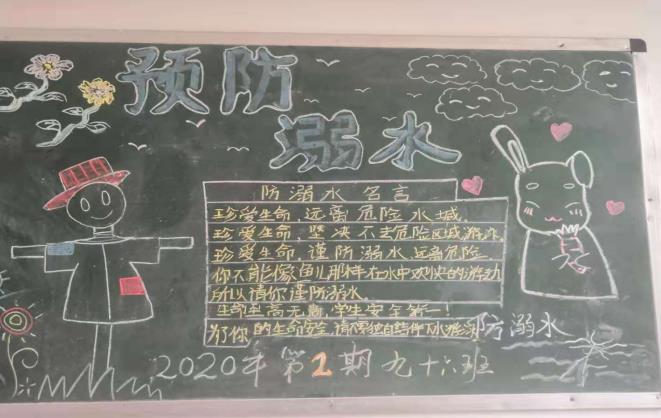 预防
溺水
防溺水名言
珍爱生命,远离危险水域。
珍爱生命,坚决不去危险区域游泳。
珍爱生命,谨防溺水,远离危险。
你不能像鱼儿那样在水中欢快的游动
所以请你谨防溺水。
生命至高无上,学生安全第一!
为了你的生命安全,请
防溺水
2020年第1期九十六班